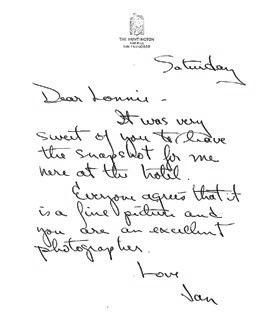 THE HUNTINGTON
SAN FRANCISCO
Saturday
Dear Lonnie -
It was very
sweet of you to leave
the snapshot for me
here at the hotel.
Everyone agrees that it
is a fine picture and
you are an excellent
photographer.
Love
Jan